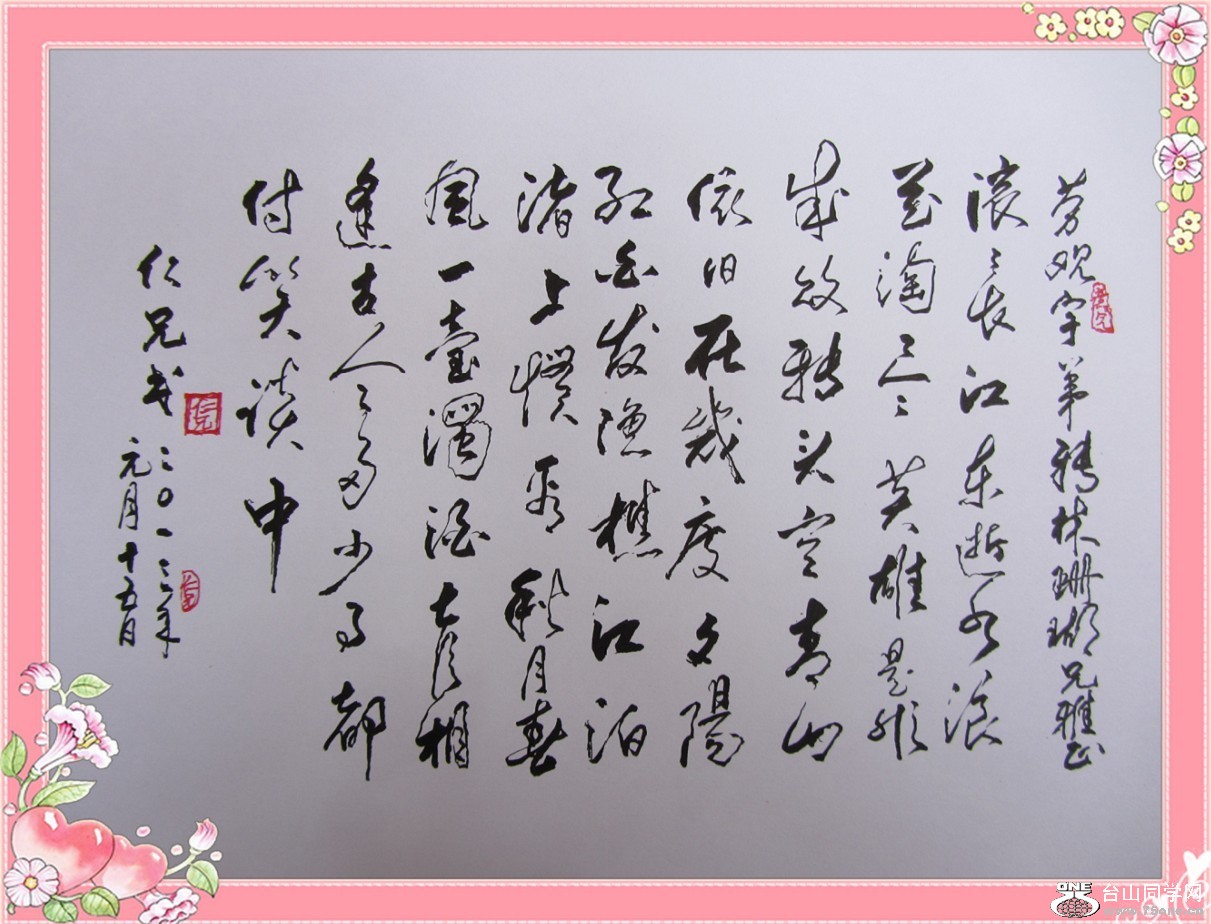 劳观宇弟转林珊瑚兄雅正
滚々长江东逝水浪
花淘尽英雄是非
成败转头空青山
依旧在几度夕陽
红白发渔樵江泊
渚上惯看秋月春
风一壶濁酒喜相
逢古人々多少事都
付笑谈中
仁兄书
二〇一三年
元月十五日
ONE
台山同学网